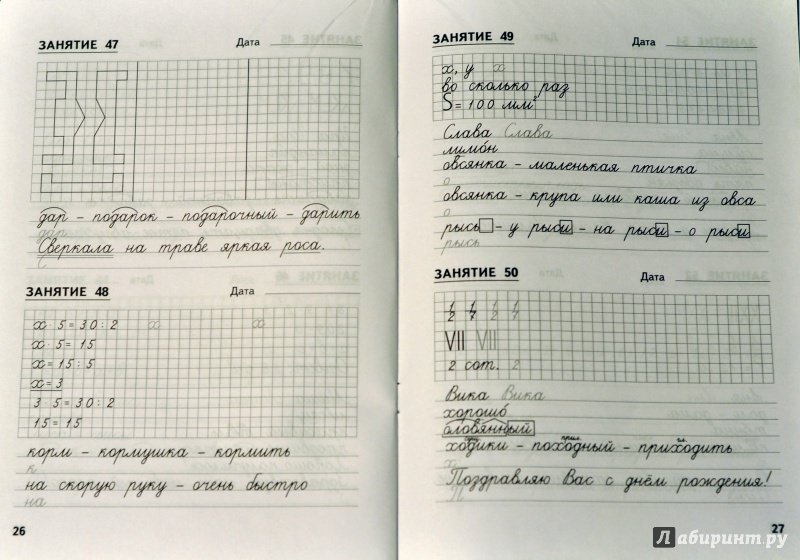 ЗАНЯТИЕ 47 Дата
дар – подарок – подарочный – дарить
дар
Сверкала на траве яркая роса.
С
ЗАНЯТИЕ 48 Дата
x · 5 = 30 : 2 x x
x · 5 = 15
x = 15 : 5
x = 3
3 · 5 = 30 : 2
15 = 15
корм – кормушка – кормить
к
на скорую руку – очень быстро
на
26
ЗАНЯТИЕ 49 Дата
x, y x
во сколько раз
S = 100 мм²
Слава Слава
лимо́н
овсянка – маленькая птичка
о
овсянка – крупа или каша из овса
о
рысь – у рыси – на рыси – о рыси
рысь
ЗАНЯТИЕ 50 Дата
1/2 1/7 1/2 1/7
VII VII
2 сот. 2
Вика Вика
хорошо́
оловянный
ходики – походный – приходить
х
Поздравляю Вас с днём рождения!
П
27
Лабиринт.ру